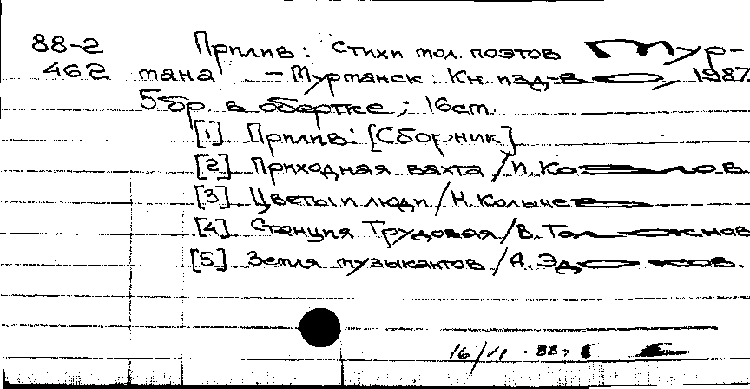 88-2 Прилив: Стихи мол. поэтов Мур-
462 мана - Мурманск: Кн. изд-во, 1987.
5 бр. в обертке; 16 см.
[1] Прилив: [Сборник]
[2] Приходная вахта / И.
[3] Цветы и люди / Н.
[4] Станция Трудовая / В.
[5] Земля музыкантов / А.
16/11 - 88г